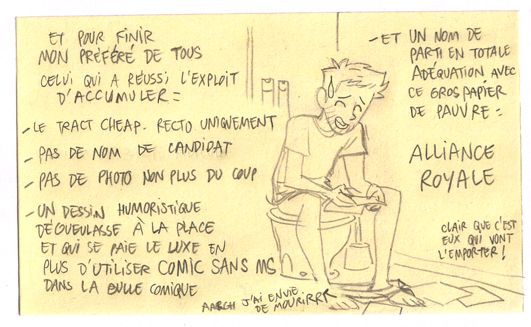 ET POUR FINIR
MON PRÉFÉRÉ DE TOUS
CELUI QUI A RÉUSSI L'EXPLOIT
D'ACCUMULER :
- LE TRACT CHEAP. RECTO UNIQUEMENT
- PAS DE NOM DE CANDIDAT
- PAS DE PHOTO NON PLUS DU COUP
- UN DESSIN HUMORISTIQUE
DÉGUEULASSE À LA PLACE
ET QUI SE PAIE LE LUXE EN
PLUS D'UTILISER COMIC SANS MS
DANS LA BULLE COMIQUE
AARGH J'AI ENVIE
DE MOURIRRR
- ET UN NOM DE
PARTI EN TOTALE
ADÉQUATION AVEC
CE GROS PAPIER
DE PAUVRE :
ALLIANCE
ROYALE
CLAIR QUE C'EST
EUX QUI VONT
L'EMPORTER !